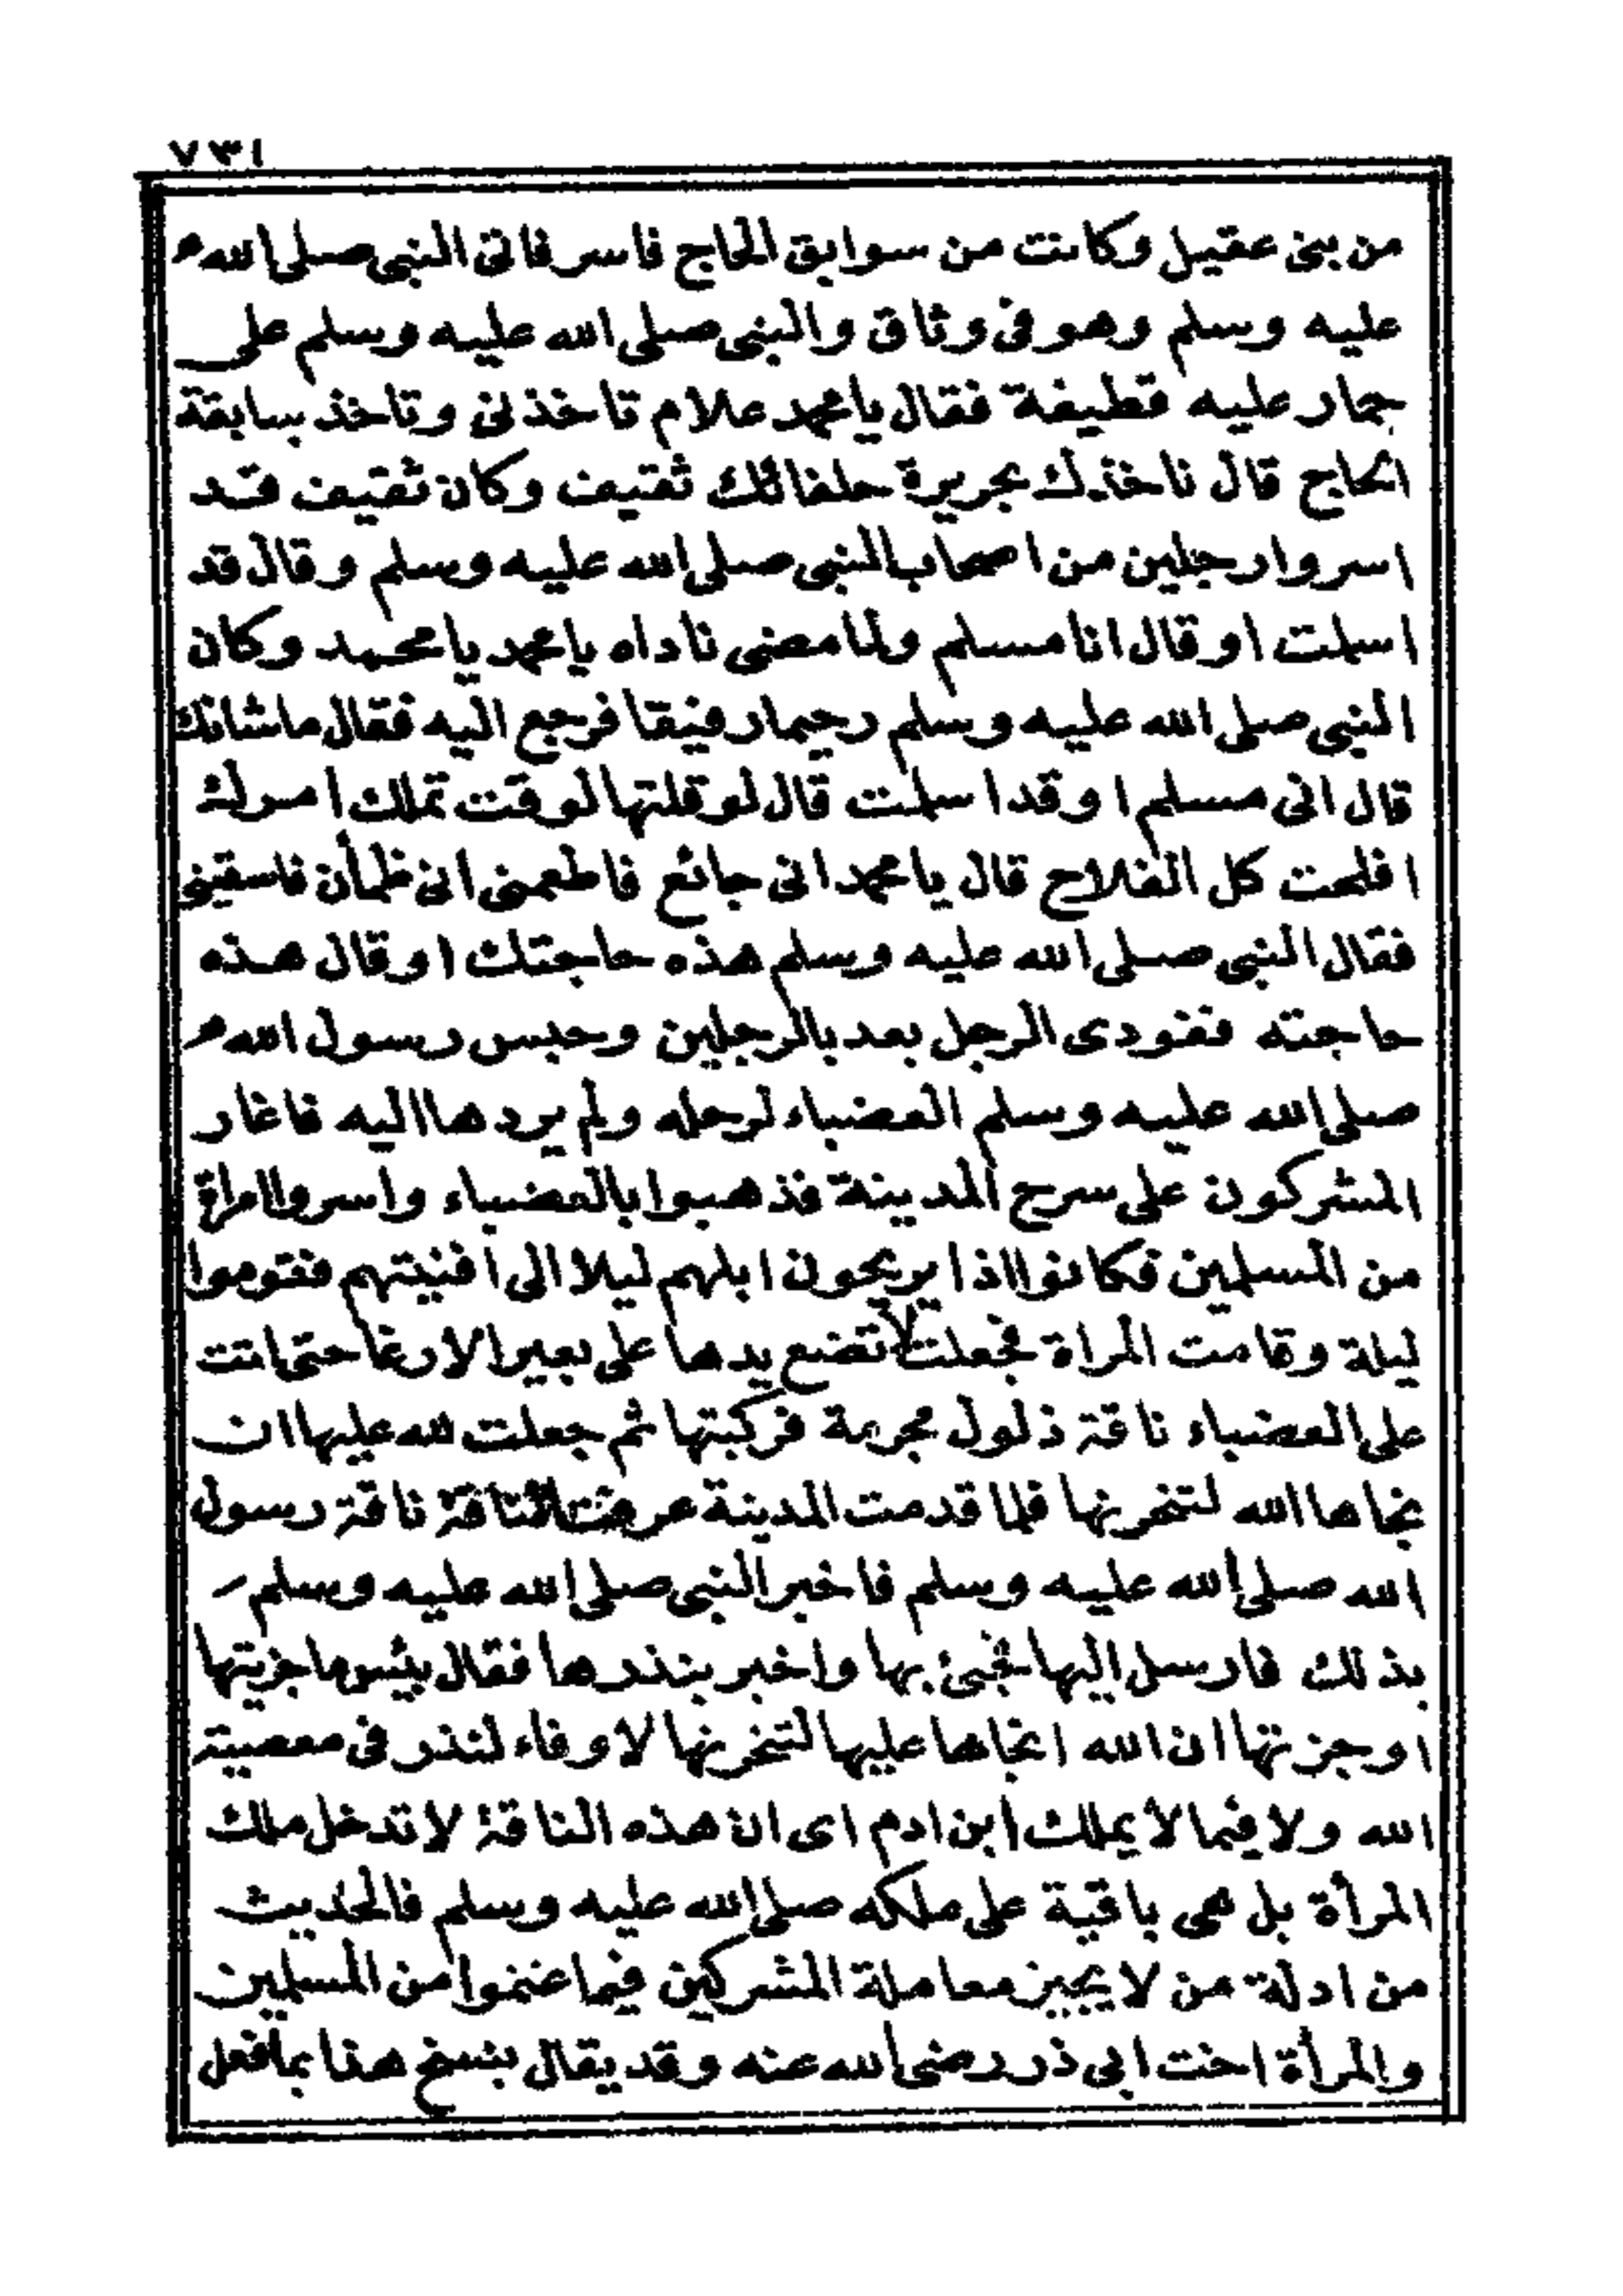 ١٣٧
من بنى عقيل وكانت من سوابق الحاج فاسر فاتى النبى صلى الله
عليه وسلم وهو فى وثاق والنبى صلى الله عليه وسلم على
حمار عليه قطيفة فقال يا محمد علام تاخذنى وتاخذ بسابقة
الحاج قال ناخذك بجريرة حلفائك ثقيف وكان ثقيف قد
اسروا رجلين من اصحاب النبى صلى الله عليه وسلم وقال قد
اسلمت او قال انا مسلم ولما مضى ناداه يا محمد يا محمد وكان
النبى صلى الله عليه وسلم رحيما رفيقا فرجع اليه فقال ما شانك
قال انى مسلم او قد اسلمت قال لو قلتها لوقت تملك امرك
افلحت كل الفلاح قال يا محمد انى جائع فاطعمنى انى ظمأن فاسقينى
فقال النبى صلى الله عليه وسلم هذه حاجتك او قال هذه
حاجته ففودى الرجل بعد بالرجلين وحبس رسول الله
صلى الله عليه وسلم العضباء لرحله ولم يردها اليه فاغار
المشركون على سرح المدينة فذهبوا بالعضباء واسروا امراة
من المسلمين فكانوا اذا يريحون ابلهم ليلا الى افنيتهم فقوموا
ليلة وقامت المراة فجعلت لا تضع يدها على بعير الا رغا حتى اتت
على العضباء ناقة ذلول مجربة فركبتها ثم جعلت لله عليها ان
نجاها الله لتنحرنها فلما قدمت المدينة عرفت الناقة ناقة رسول
الله صلى الله عليه وسلم فاخبر النبى صلى الله عليه وسلم
بذلك فارسل اليها فجئ بها واخبر بنذرها فقال بئس ما جزيتها
او جزتها ان الله انجاها عليها لتنحرنها لا وفاء لنذر فى معصية
الله ولا فيما لا يملك ابن ادم اى ان هذه الناقة لا تدخل ملك
المرأة بل هى باقية على ملكه صلى الله عليه وسلم فالحديث
من ادلة من لا يجيز معاملة المشركين فيما غنموا من المسلمين
والمرأة اخت ابى ذر رضى الله عنه وقد يقال بنسخ هذا بما فعل